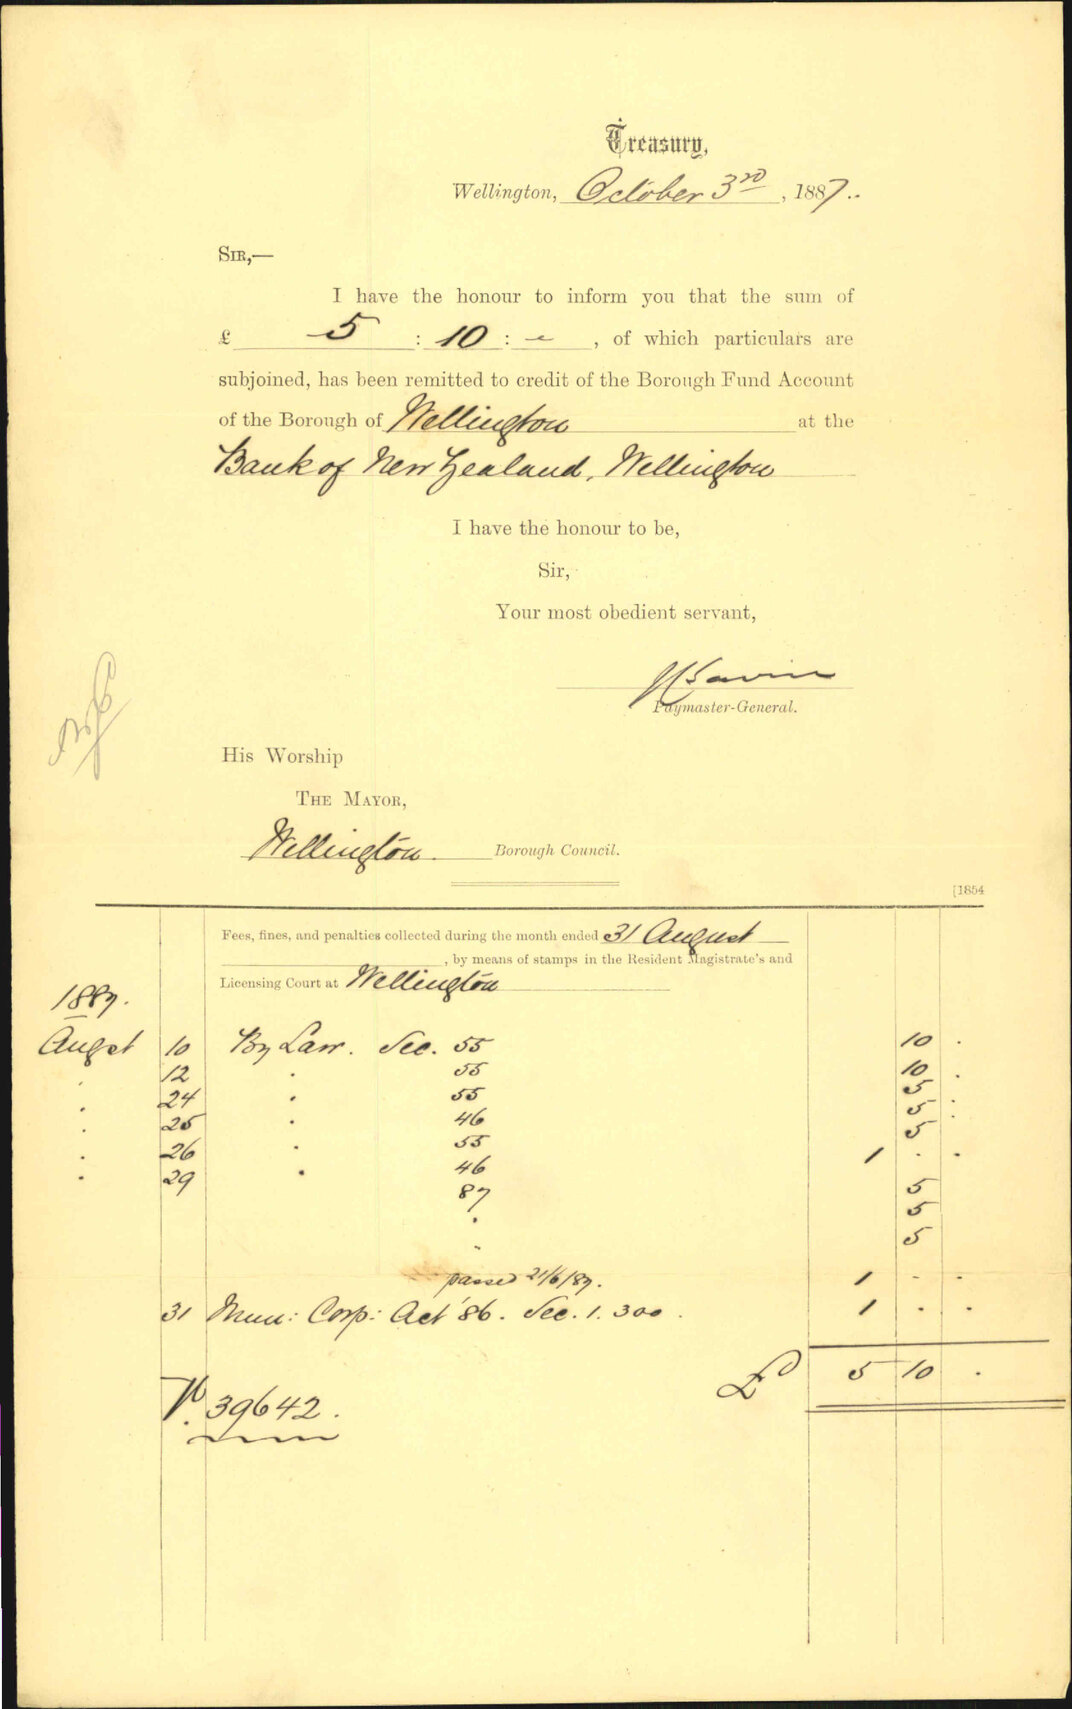 Treasury,
Wellington, October 3rd, 1887.
SIR,—
I have the honour to inform you that the sum of
£ 5 : 10 : - , of which particulars are
subjoined, has been remitted to credit of the Borough Fund Account
of the Borough of Wellington at the
Bank of New Zealand, Wellington
I have the honour to be,
Sir,
Your most obedient servant,
Paymaster-General.
His Worship
THE MAYOR,
Wellington Borough Council.
[1854
Fees, fines, and penalties collected during the month ended 31 August
, by means of stamps in the Resident Magistrate's and
Licensing Court at Wellington
1887.
Augst 10 By Law. Sec. 55 10 .
" 12 " 55 10 .
" 24 " 55 5 .
" 25 " 46 5 .
" 26 " 55 5
" 29 " 46 1 . .
87 5
" 5
" 5
passed 21/6/87. 1 - -
31 Mun: Corp: Act '86. Sec. 1. 300. 1 . .
£ 5 10 .
39642.